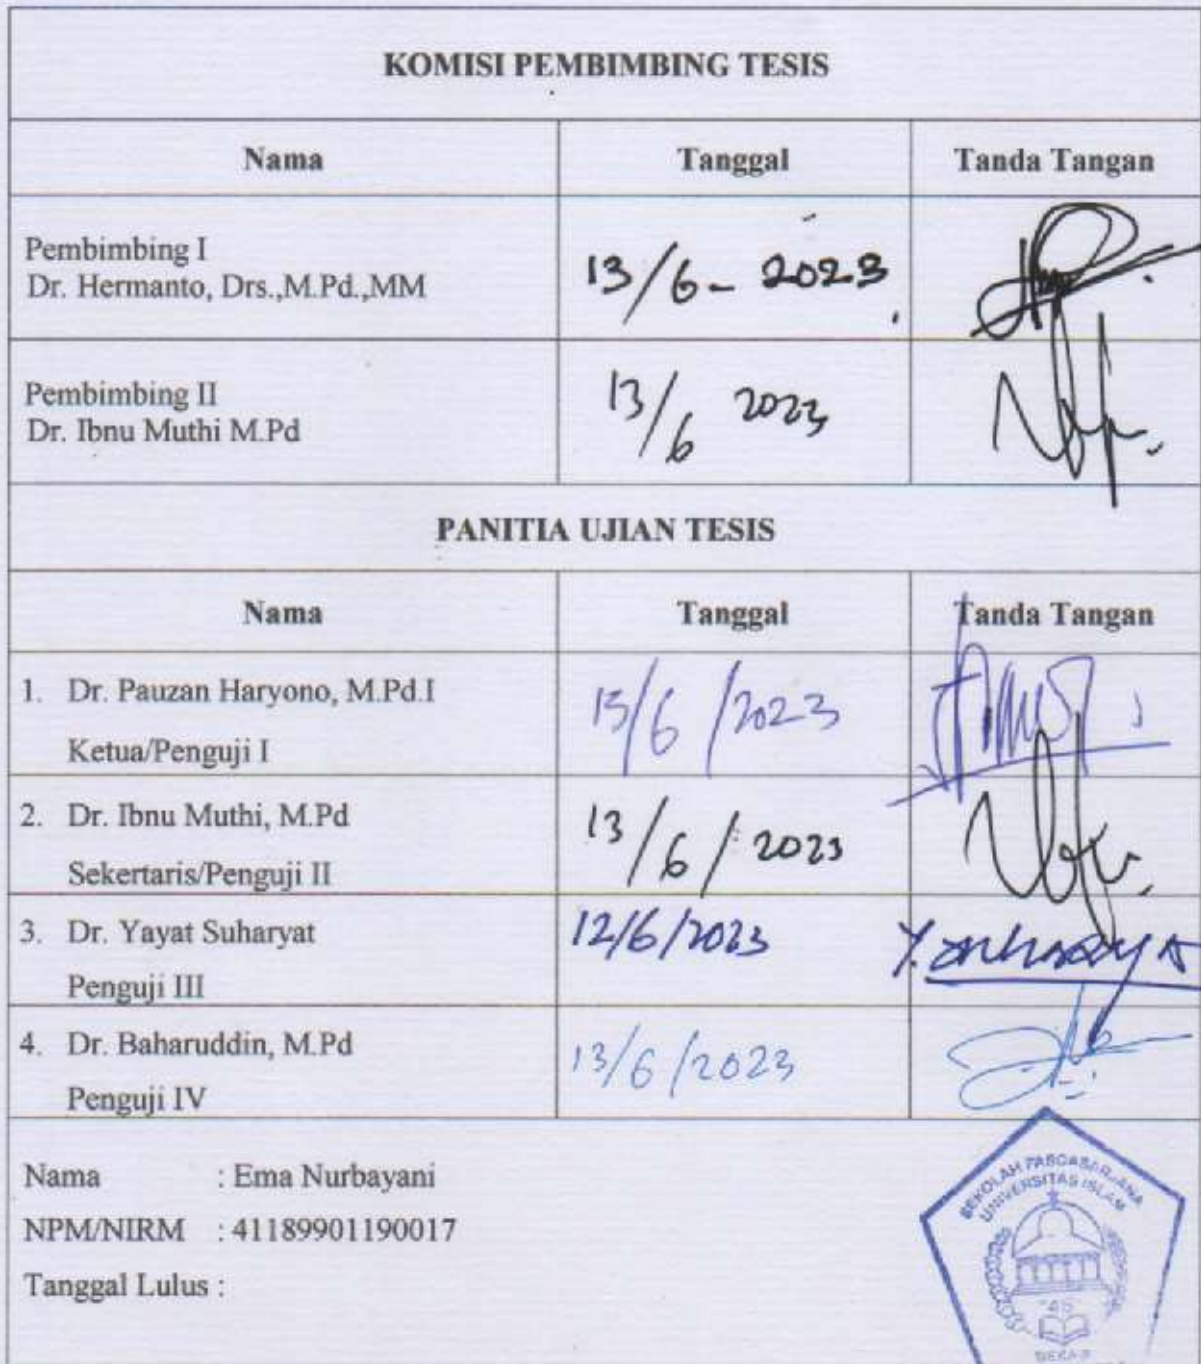 KOMISI PEMBIMBING TESIS
Nama Tanggal Tanda Tangan
Pembimbing I
Dr. Hermanto, Drs.,M.Pd.,MM
13/6- 2023
Pembimbing II
Dr. Ibnu Muthi M.Pd
13/6 2023
PANITIA UJIAN TESIS
Nama Tanggal Tanda Tangan
1. Dr. Pauzan Haryono, M.Pd.I
Ketua/Penguji I
/6 /2023
2. Dr. Ibnu Muthi, M.Pd
Sekertaris/Penguji II
13/6/2023
3. Dr. Yayat Suharyat
Penguji III
12/6/2023
4. Dr. Baharuddin, M.Pd
Penguji IV
13/6/2023
Nama : Ema Nurbayani
NPM/NIRM : 41189901190017
Tanggal Lulus :
SEKOLAH PASCASARJANA
UNIVERSITAS ISLAM
"45"
BEKASI